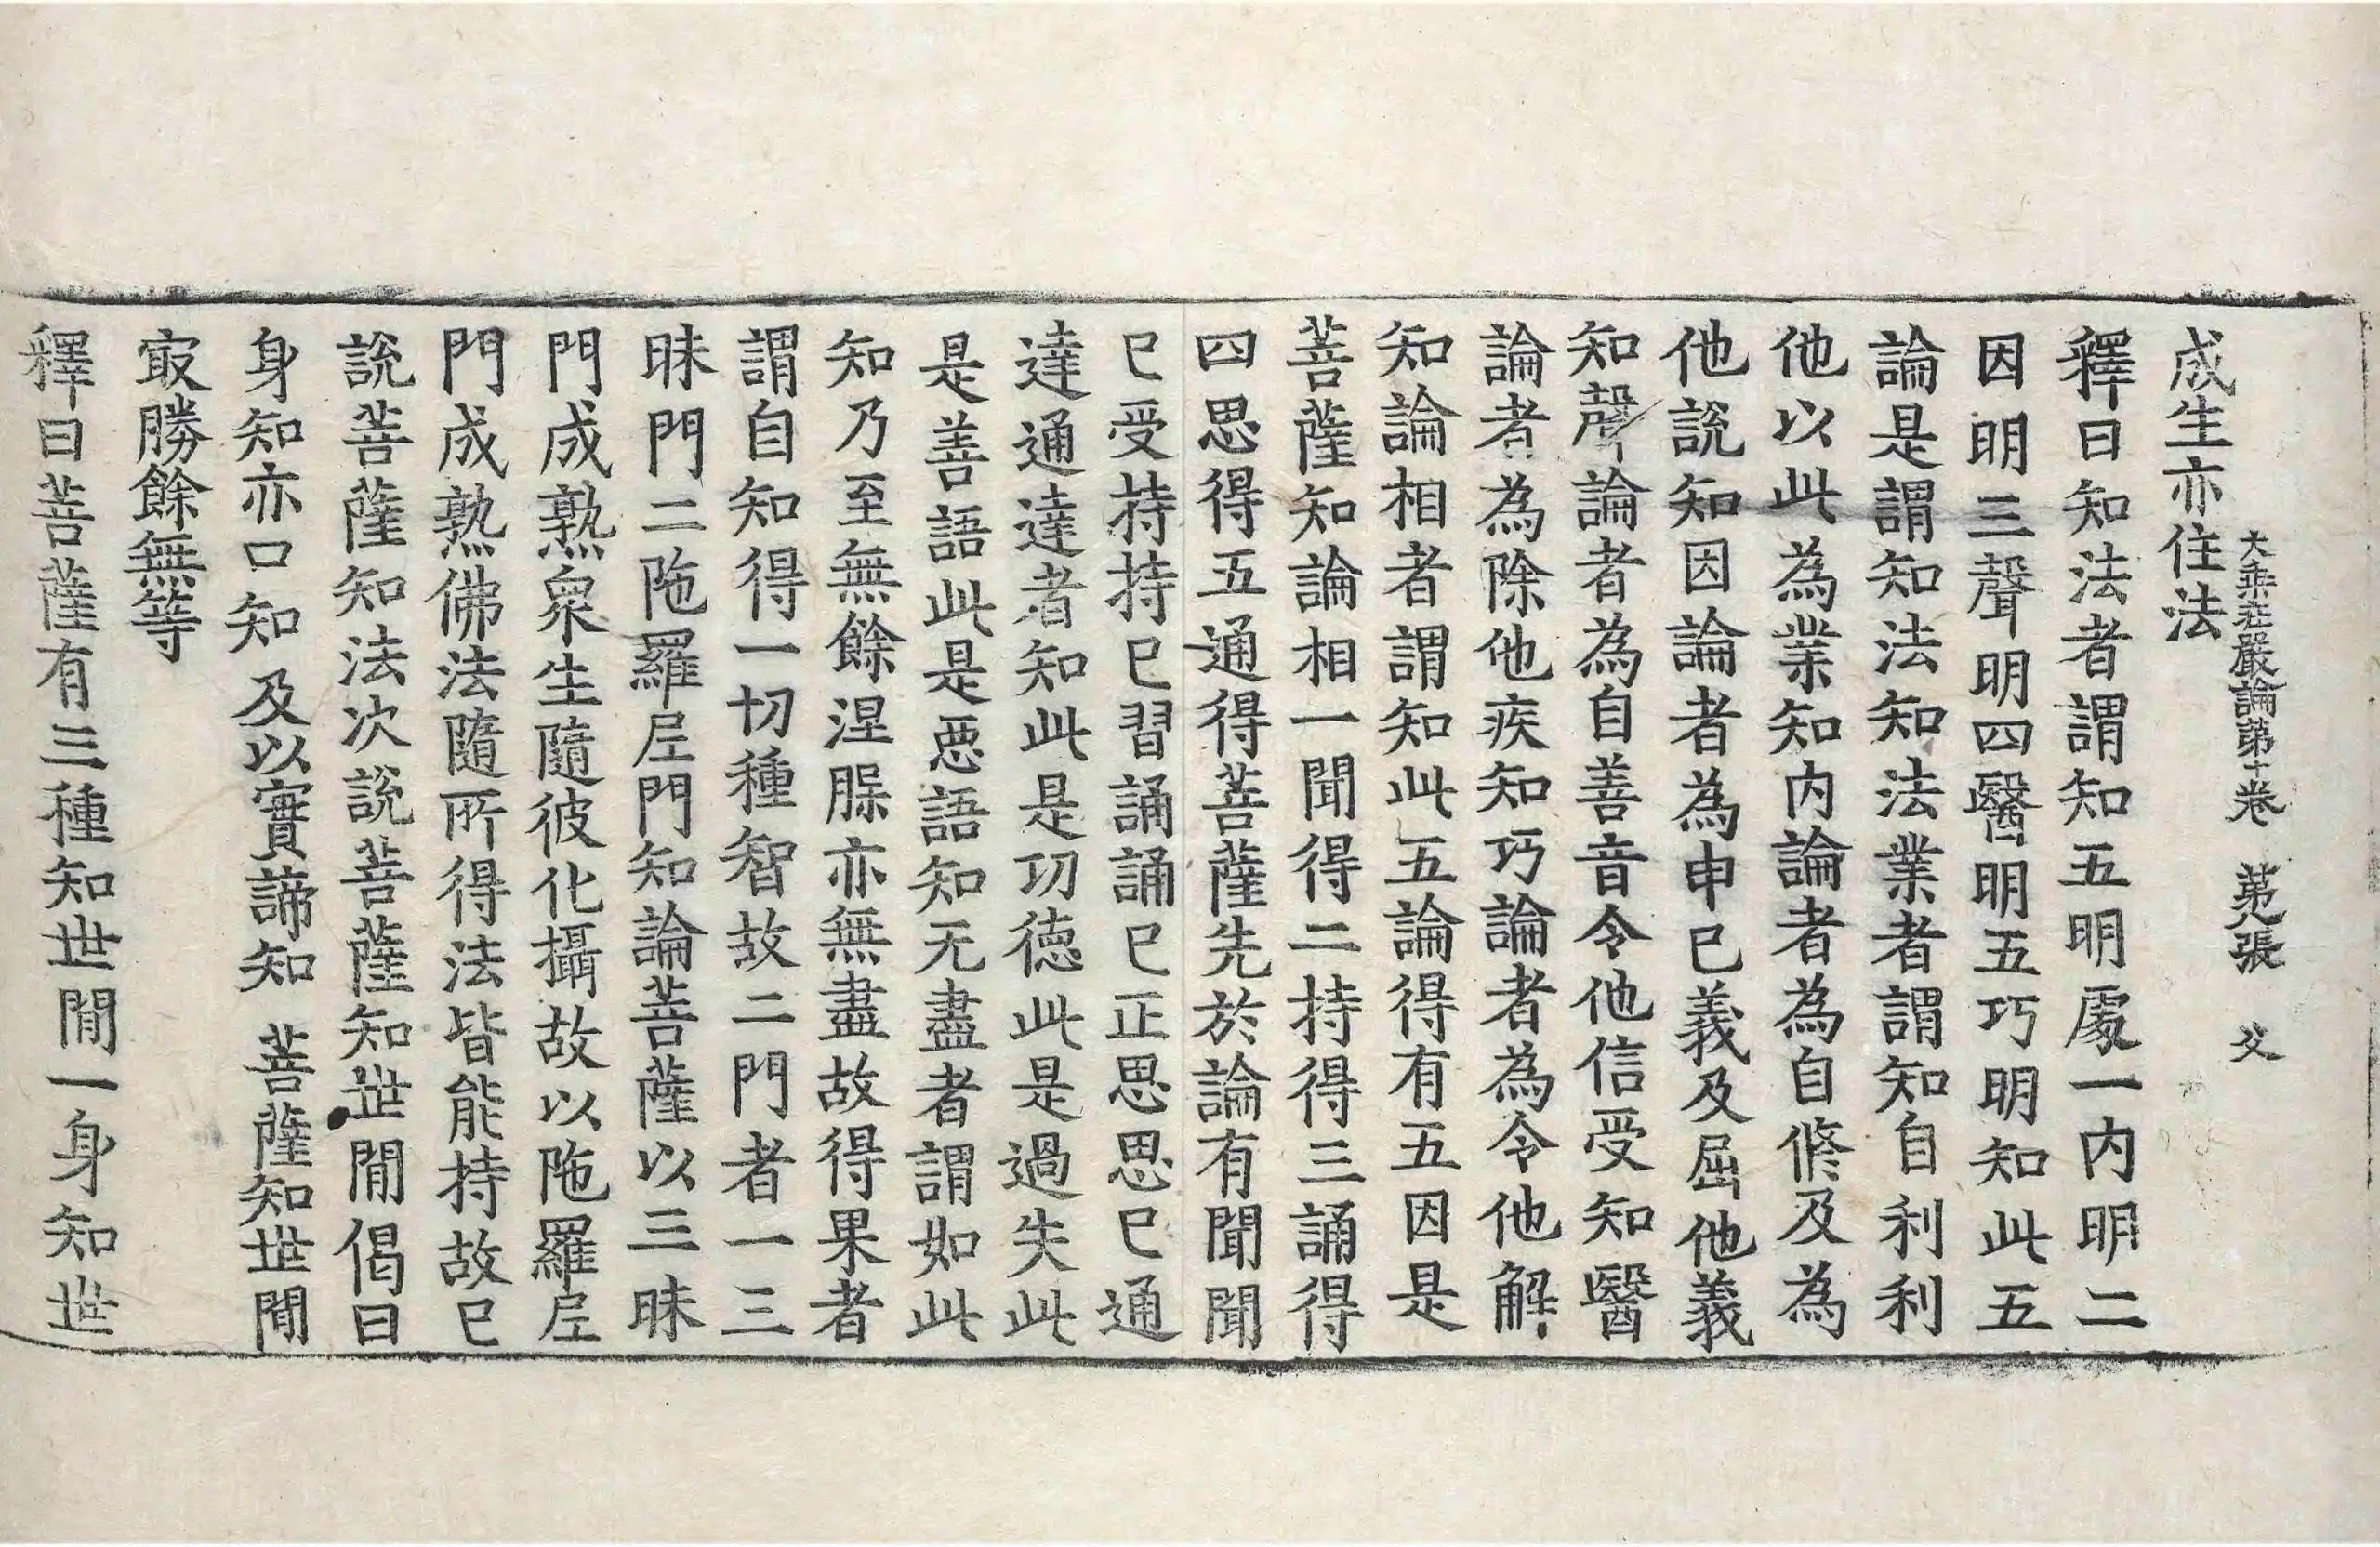 成生亦住法
大乘莊嚴論第十卷 第九張 父
釋曰知法者謂知五明處一内明二
因明三聲明四醫明五巧明知此五
論是謂知法知法業者謂知自利利
他以此為業知内論者為自修及為
他説知因論者為申已義及屈他義
知聲論者為自善音令他信受知醫
論者為除他疾知巧論者為令他解
知論相者謂知此五論得有五因是
菩薩知論相一聞得二持得三誦得
四思得五通得菩薩先於論有聞聞
已受持持已習誦誦已正思思已通
達通達者知此是功德此是過失此
是善語此是惡語知无盡者謂如此
知乃至無餘涅槃亦無盡故得果者
謂自知得一切種智故二門者一三
昧門二陁羅尼門知論菩薩以三昧
門成熟衆生隨彼化攝故以陁羅尼
門成熟佛法隨所得法皆能持故已
説菩薩知法次説菩薩知世閒偈曰
身知亦口知 及以實諦知 菩薩知世閒
㝡勝餘無等
釋曰菩薩有三種知世閒一身知世